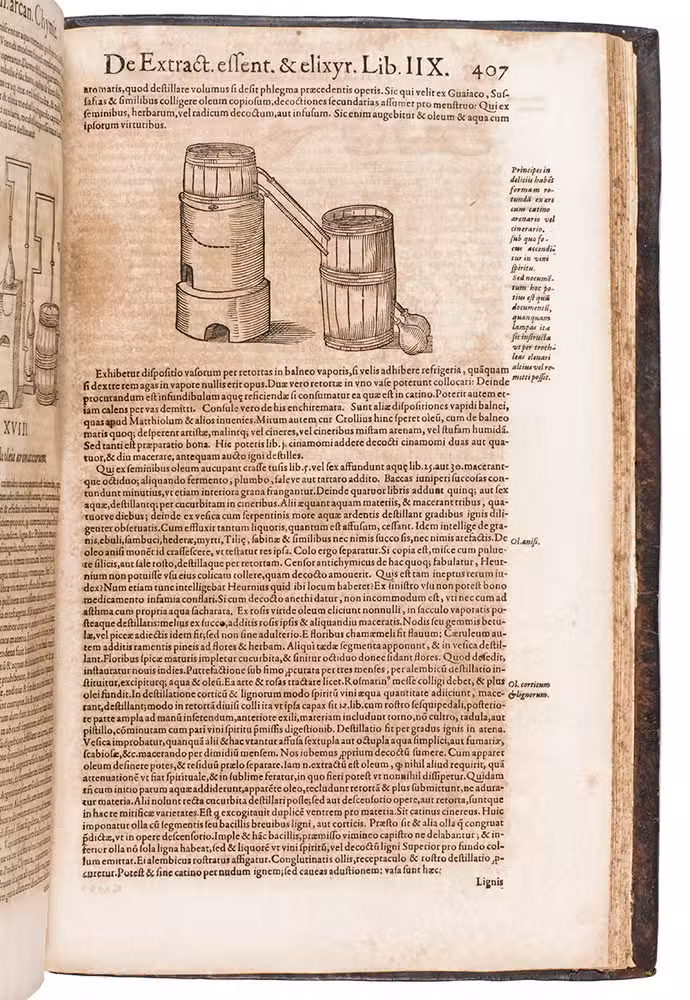 De Extract. essent. & elixyr. Lib. IIX. 407
aromatis, quod destillare volumus si desit phlegma præcedentis operis. Sic qui velit ex Guaiaco, Sus-
safias & similibus colligere oleum copiosum, decoctiones secundarias assumet pro menstruo: Qui ex
seminibus, herbarum, vel radicum decoctum, aut infusum. Sic enim augebitur & oleum & aqua cum
ipsorum virtutibus.
Principes in
deliciis habẽt
formam ro-
tundã ex ære
cum catino
arenario vel
cinerario,
sub quo fo-
cus accendi-
tur in vini
spiritu.
Sed nocumẽ-
tum hoc po-
tius est quã
documentũ,
quanquam
lampas ita
sit instructa
vt per troch-
leas eleuari
altius vel ro-
mitti possit.
Exhibetur dispositio vasorum per retortas in balneo vaporis, si velis adhibere refrigeria, quãquam
si dextre rem agas in vapore nullis erit opus. Duæ vero retortæ in vno vase poterunt collocari: Deinde
procurandum est infundibulum aquę reficiendæ si consumatur ea quæ est in catino. Poterit autem et-
iam calens per vas demitti. Consule vero de his enchiremata. Sunt aliæ dispositiones vapidi balnei,
quas apud Matthiolum & alios inuenies. Mirum autem cur Crollius hinc speret oleũ, cum de balneo
maris quoq; desperent artistæ, malintq; vel cineres, vel cineribus mistam arenam, vel stufam humidã.
Sed tanti est præparatio bona. Hic poteris lib. j. cinamomi addere decocti cinamomi duas aut qua-
tuor, & diu macerare, antequam aucto igni destilles.
Qui ex seminibus oleum aucupant crasse tusis lib. 5. vel sex affundunt aquę lib. 25. aut 30. macerant-
que octiduo; aliquando fermento, plumbo, sale ve aut tartaro addito. Baccas iuniperi succosas con-
tundunt minutius, vt etiam interiora grana frangantur. Deinde quatuor libris addunt quinq; aut sex
aquæ, destillantq; per cucurbitam in cineribus. Alii æquant aquam materiis, & macerant tribus, qua-
tuor ve diebus; deinde ex vesica cum serpentinis more aquæ ardentis destillant gradibus ignis dili-
genter obseruatis. Cum effluxit tantum liquoris, quantum est affusum, cessant. Idem intellige de gra-
nis, ebuli, sambuci, hederæ, myrti, Tilię, sabinæ & similibus nec nimis succosis, nec nimis arefactis. De
Ol. anisi.
oleo anisi monẽt id crassescere, vt testatur res ipsa. Colo ergo separatur. Si copia est, misce cum puluere
silicis, aut sale rosto, destillaque per retortam. Censor antichymicus de hac quoq; fabulatur, Heur-
nium non potuisse vsu eius colicam tollere, quam decocto amouerit. Quis est tam ineptus rerum in-
dex? Num etiam tunc intelligebat Heurnius quid ibi locum haberet? Ex sinistro vsu non potest bono
medicamento infamia constari. Si cum decocto anethi datur, non incommodum est, vti nec cum ad
asthma cum propria aqua sacharata. Ex rosis viride oleum eliciunt nonnulli, in sacculo vaporatis po-
steaque destillatis: melius ex succo, additis rosis ipsis & aliquandiu maceratis. Nodis seu gemmis betu-
læ, vel piceæ adiectis idem fit; sed non sine adulterio. E floribus chamæmeli fit flauum: Cæruleum au-
tem additis ramentis pineis ad flores & herbam. Aliqui tædæ segmenta apponunt, & in vesica destil-
lant. Floribus spicæ maturis impletur cucurbita, & sinitur octiduo donec sidant flores. Quod desedit,
instauratur nouis indies. Putrefactione sub fimo, pcurata per tres menses, per alembicũ destillatio in-
stituitur, excipiturq; aqua & oleũ. Ea arte & rosas tractare licet. Rosmarinꝰ messe colligi debet, & plus
Ol. corticum
& lignorum.
olei fundit. In destillatione corticũ & lignorum modo spiritũ vini æqua quantitate adiiciunt, mace-
rant, destillant; modo in retortã diuisũ colli ita vt ipsa capax sit 12. lib. cum rostro sesquipedali, posterio-
re parte ampla ad manũ inferendam, anteriore exili, materiam includunt torno, nõ cultro, radula, aut
pistillo, cõminutam cum pari vini spiritu pmissis digestionib. Destillatio fit per gradus ignis in arena.
Vesica improbatur, quanquã alii & hac vtantur affusa sextupla aut octupla aqua simplici, aut fumariæ,
scabiosæ, &c. macerando per dimidiũ mensem. Nos iubemus ꝓprium decoctũ sumere. Cum apparet
oleum desinere potes, & residuũ prælo separare. Iam n. extractũ est oleum, q nihil aliud requirit, quã
attenuationẽ vt fiat spirituale, & in sublime feratur, in quo fieri potest vt nonnihil dissipetur. Quidam
tñ cum initio parum aquæ addiderunt, apparẽte oleo, recludunt retortã & plus submittunt, ne adura-
tur materia. Alii nolunt recta cucurbita destillari posse, sed aut descensorio opere, aut retorta, suntque
in hac re mirificæ varietates. Est q excogitauit duplicẽ ventrem pro materia. Sit catinus cinereus. Huic
imponatur olla cũ segmentis seu bacillis breuibus ligni, aut corticis. Præsto sit & alia olla q̃ congruat
ꝓdictæ, vt in opere descensorio. Imple & hãc bacillis, præmisso vimineo capistro ne delabantur; & in-
ferior olla nõ sola ligna habeat, sed & liquorẽ vt vini spiritũ, vel decoctũ ligni Superior pro fundo col-
lum emittat. Ei alembicus rostratus affigatur. Conglutinatis ollis, receptaculo & rostro destillatio ꝓ-
curetur. Potest & sine catino per nudum ignem; sed caueas adustionem: vasa sunt hæc:
Lignis